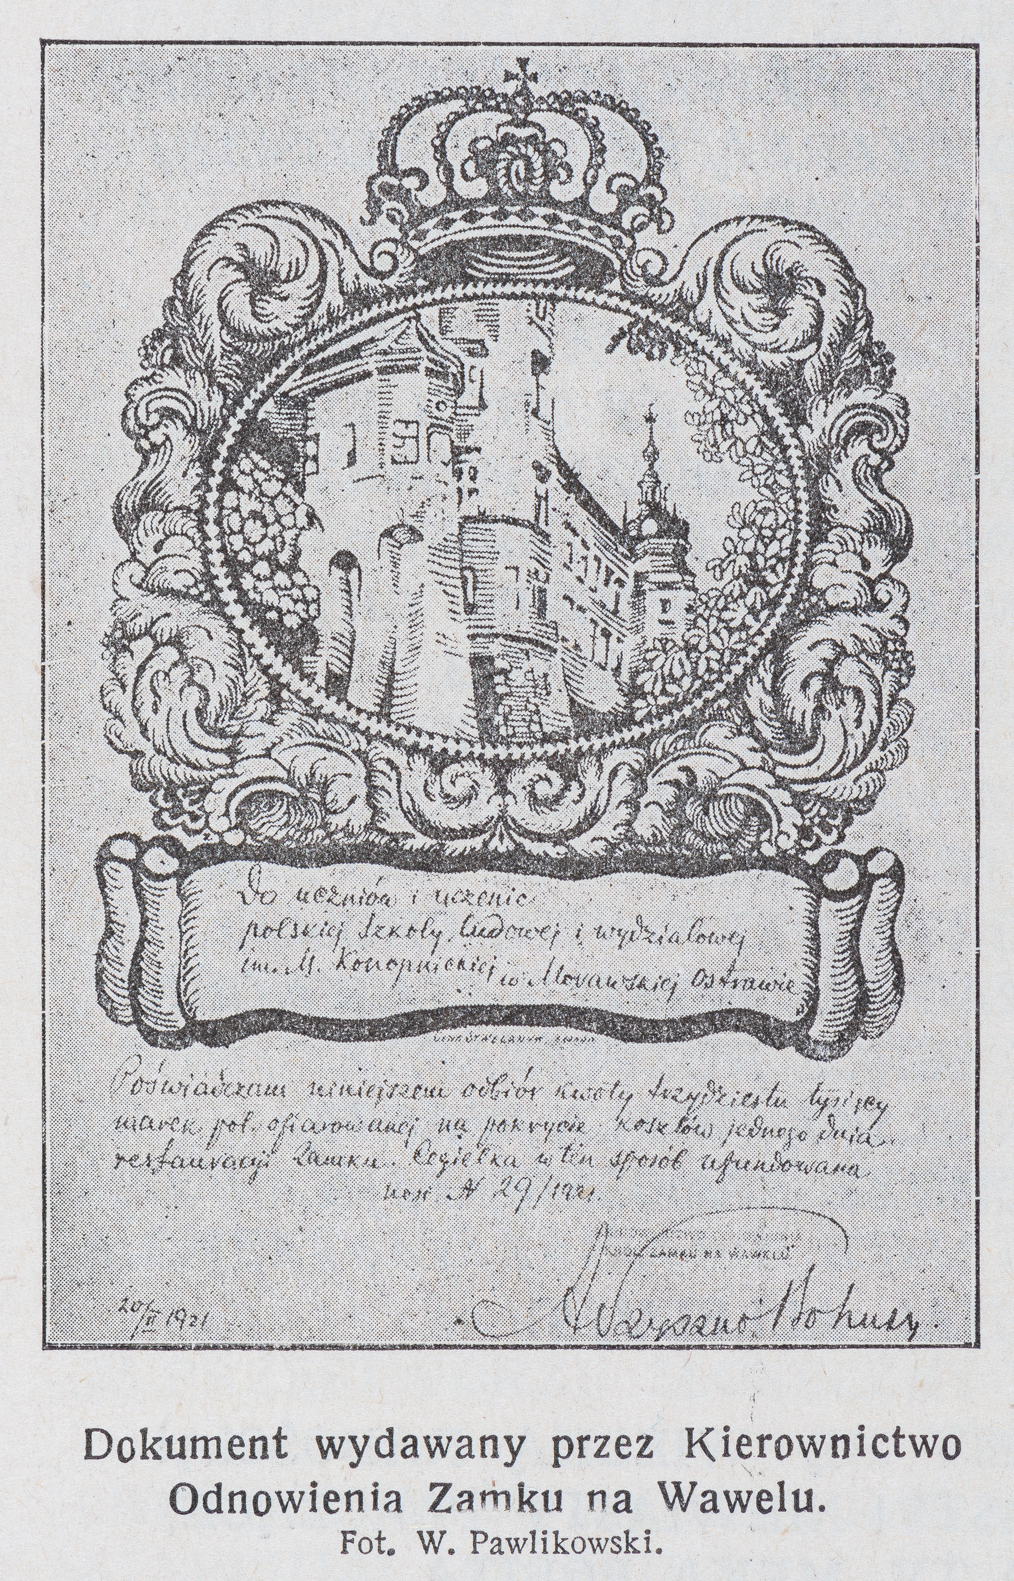 Do uczniów i uczenic
polskiej Szkoły Ludowej i wydziałowej
im. M. Konopnickiej w Morawskiej Ostrawie
Poświadczam niniejszem odbiór kwoty trzydziestu tysięcy
marek pol. ofiarowanej na pokrycie kosztów jednego dnia
restauracji Zamku. Cegiełka w ten sposób ufundowana
nosi № 29/1921.
KRÓL. ZAMKU NA WAWELU
20/II 1921
Dokument wydawany przez Kierownictwo
Odnowienia Zamku na Wawelu.
Fot. W. Pawlikowski.